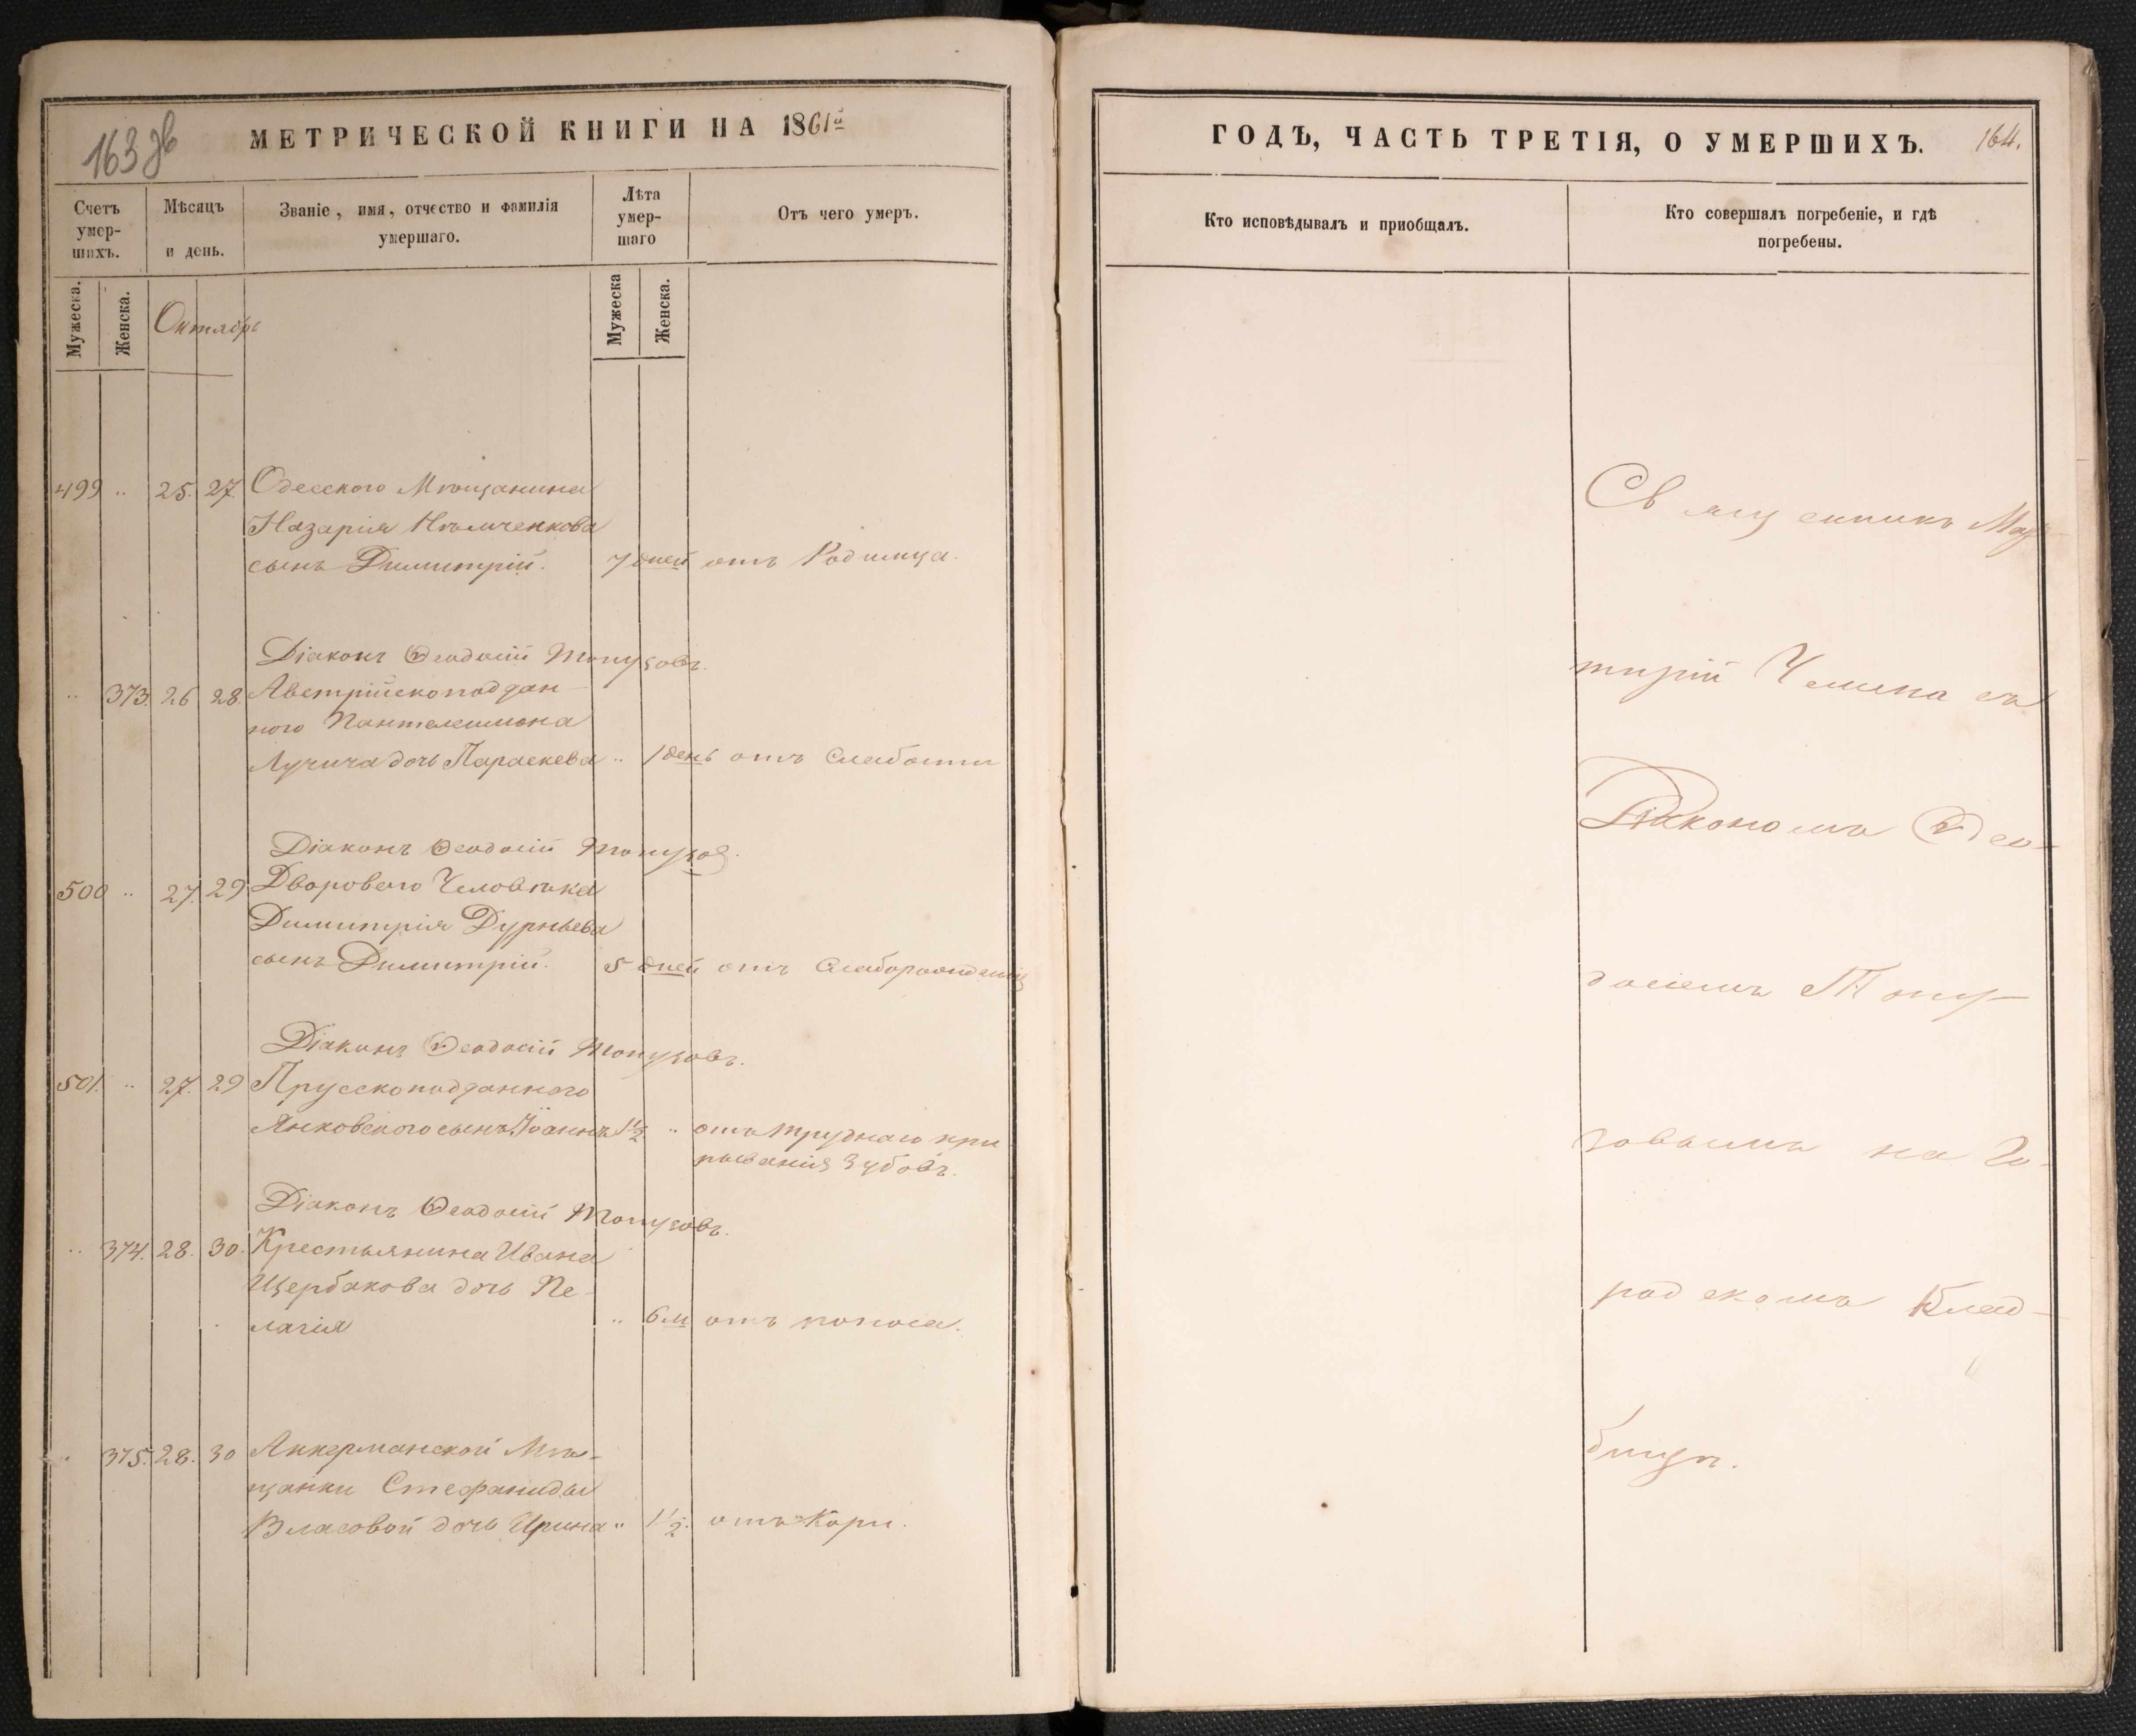 163 зв
МЕТРИЧЕСКОЙ КНИГИ НА 1861й
Счетъ умер-шихъ.
Мѣсяцъ и день.
Званіе, имя, отчество и фамилія умершаго.
Лѣта умер-шаго
Отъ чего умеръ.
Мужеска.
Женска.
Октябрь
Мужеска
Женска.
499 .. 25. 27. Одесского Мѣщанина
Назарія Нѣмченкова
сынъ Димитрій. 7 дней отъ Родимца.
Діаконъ Ѳеодосій Топузовъ.
.. 373. 26 28. Австрійскоподдан-
ного Пантелеимона
Лучича дочь Параскева .. 1 день отъ Слабости
Діаконъ Ѳеодосій Топузов.
500 .. 27. 29 Двороваго Человѣка
Димитрія Дурньева
сынъ Димитрій. 5 дней отъ Слаборожденія
Діаконъ Ѳеодосій Топузовъ.
501. .. 27. 29 Прусскоподданного
Янковского сынъ Іоаннъ 1½ .. отъ труднаго про
рыванія Зубовъ.
Діаконъ Ѳеодосій Топузовъ.
.. 374. 28. 30. Крестьянина Ивана
Щербакова дочь Пе-
лагія .. 6 м отъ поноса.
.. 375. 28. 30 Аккерманской Мѣ-
щанки Стефаниды
Власовой дочь Ирина .. 1½. отъ Кори.
ГОДЪ, ЧАСТЬ ТРЕТІЯ, О УМЕРШИХЪ.
164.
Кто исповѣдывалъ и пріобщалъ.
Кто совершалъ погребеніе, и гдѣ погребены.
Священникъ
Челина съ
Діакономъ Ѳео-
досіемъ Топу-
зовымъ на Го-
родскомъ Клад-
бищѣ.